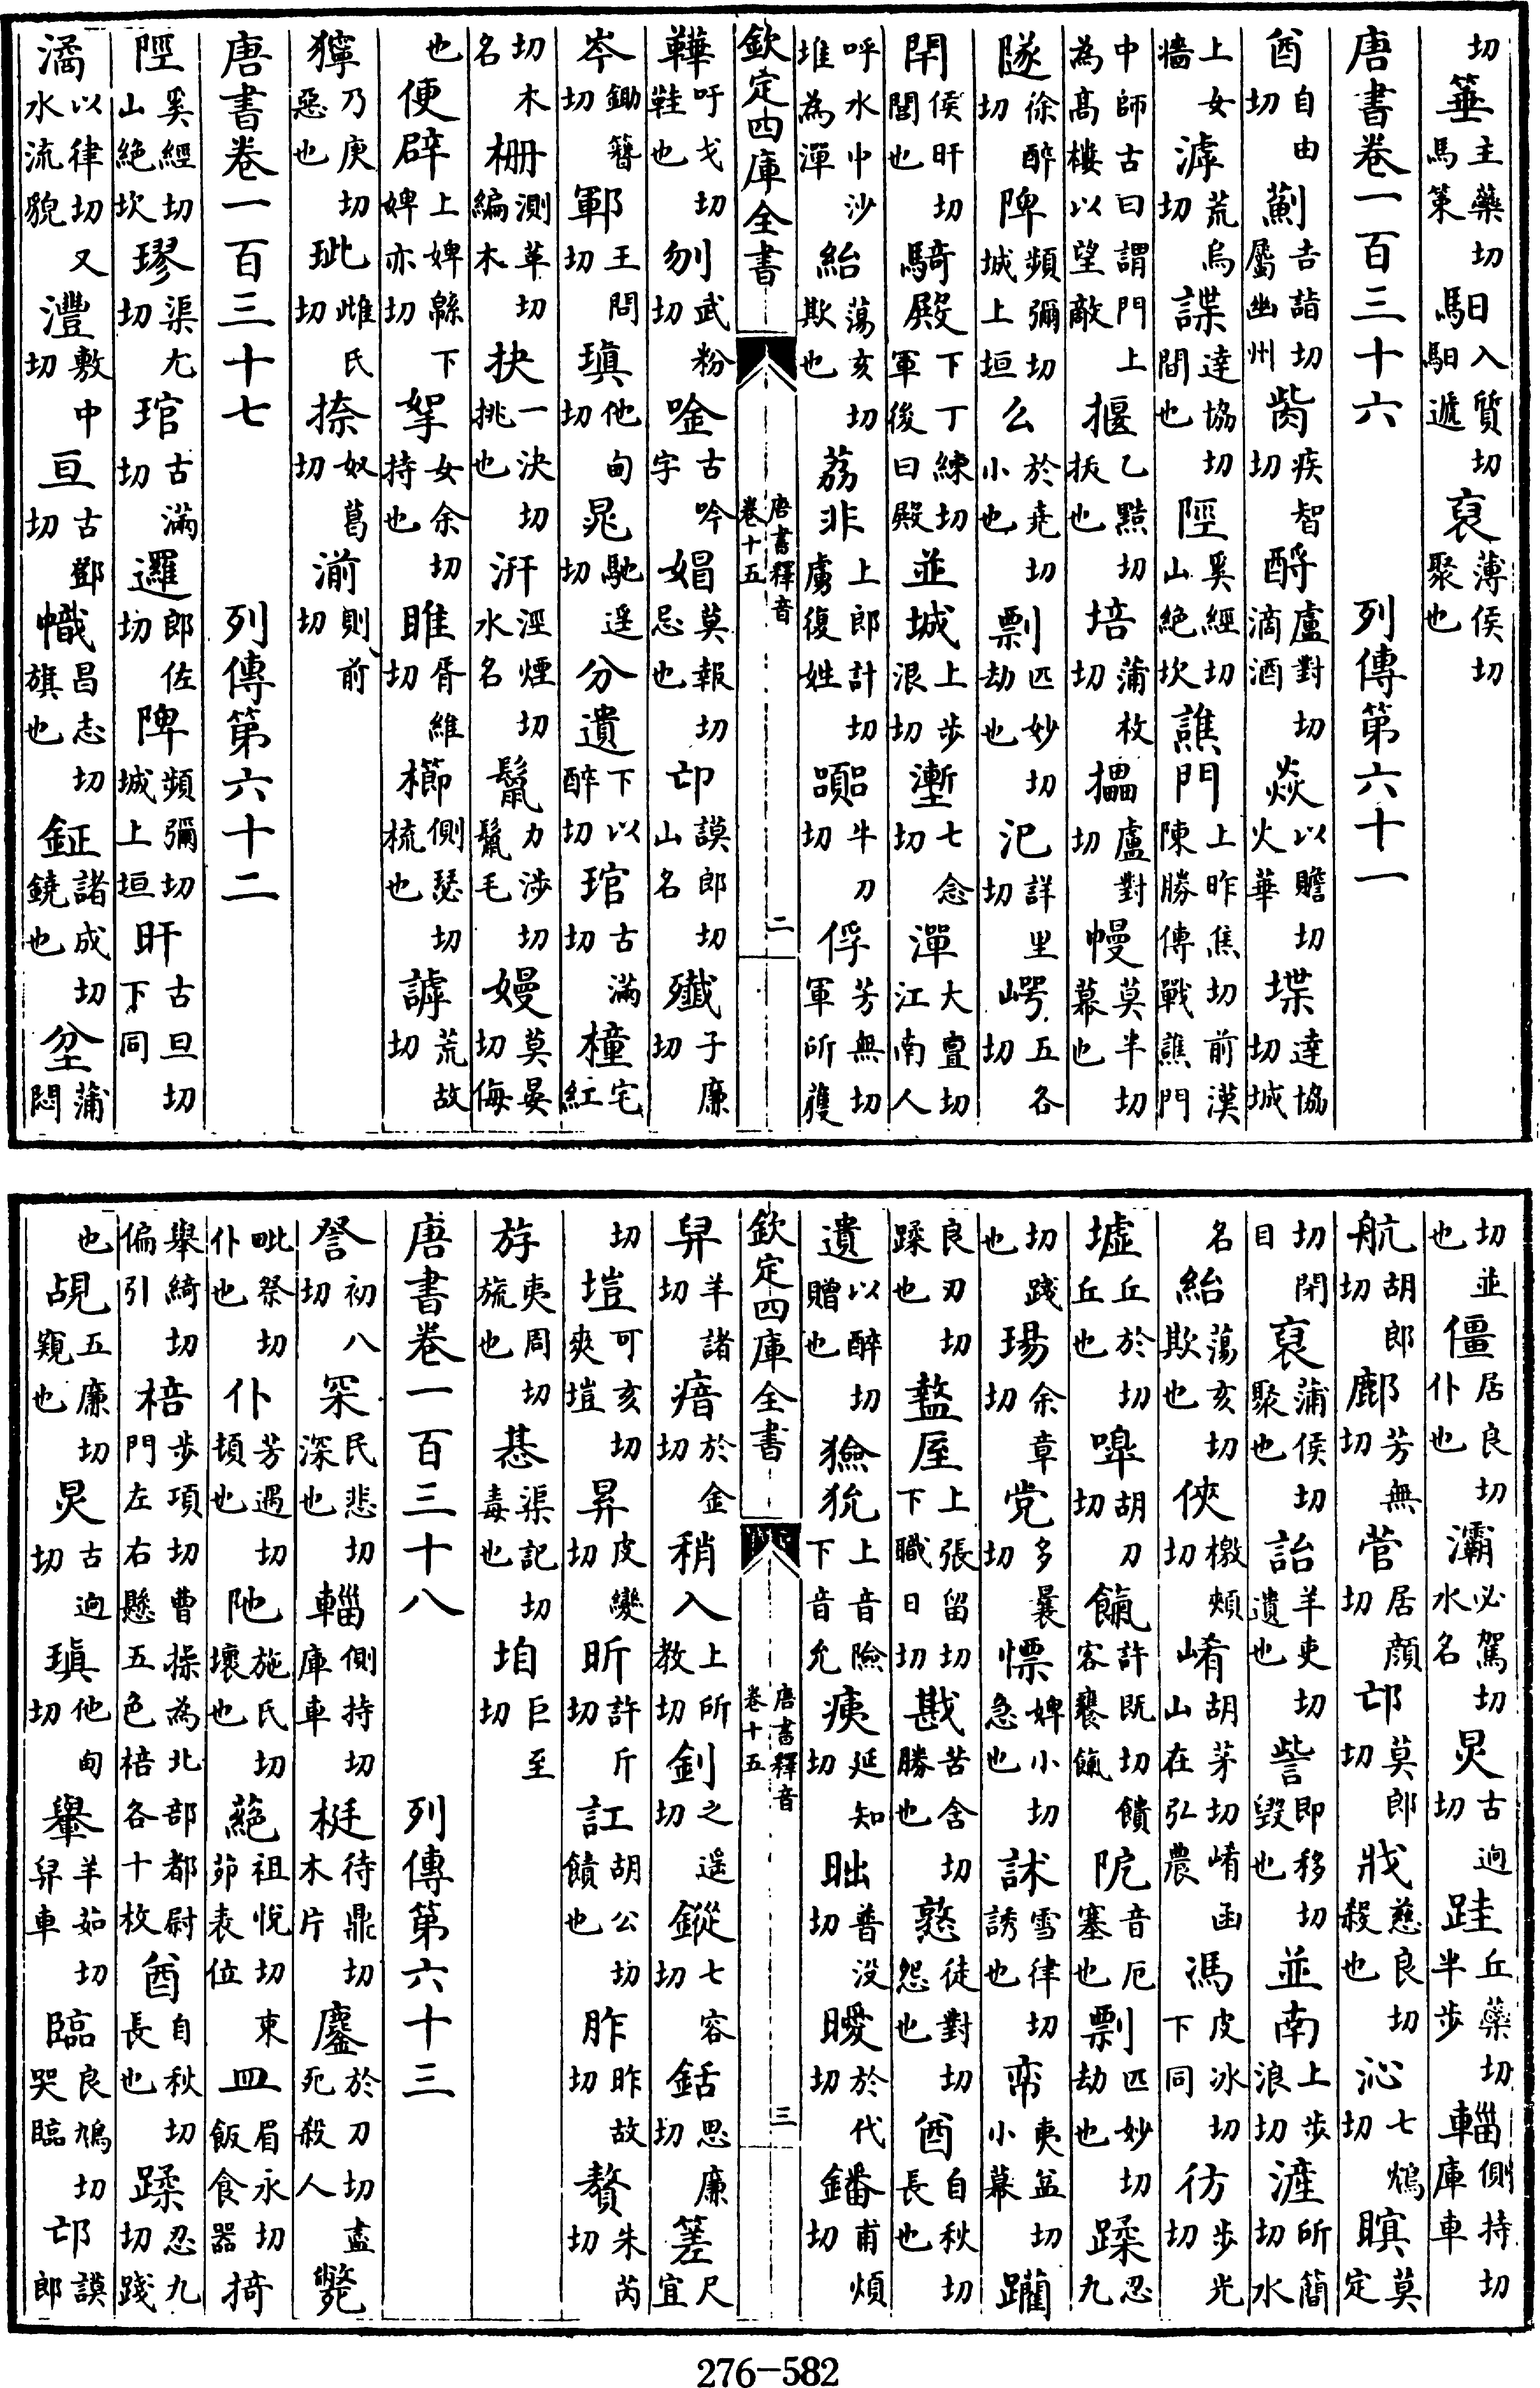 切箠主藥切馬策馹入質切馹遞裒薄侯切聚也
唐書卷一百三十六　列傳第六十一
酋自由切薊吉詣切屬幽州胔疾智切酹盧對切滴酒焱以贍切火華堞達協切城
上女牆滹荒烏切諜達協切間也陘奚經切山絶坎譙門上昨焦切前漢陳勝傳戰譙門
中師古曰謂門上為高樓以望敵揠乙黠切拔也掊蒲枚切攂盧對切幔莫半切幕也
隧徐醉切陴頻彌切城上垣么於堯切小也剽匹妙切劫也汜詳里切崿五各切
閈侯旰切閭也騎殿下丁練切軍後曰殿並城上步浪切塹七念切潬大亶切江南人
呼水中沙堆為潬紿蕩亥切欺也荔非上郎計切虜復姓㗊牛刀切俘芳無切軍所獲
欽定四庫全書　唐書釋音卷十五　二
鞾吁戈切鞋也刎武粉切唫古吟字媢莫報切忌也邙謨郎切山名殲子廉切
岑鋤簪切鄆王問切瑱他甸切晁馳遥切分遺下以醉切琯古滿切橦宅紅
切木名柵測革切編木抉一決切挑也汧涇煙切水名鬣力涉切鬣毛嫚莫晏切侮
也便辟上婢緜切下婢亦切挐女余切持也睢胥維切櫛側瑟切梳也謼荒故切
獰乃庚切惡也玼雌氏切捺奴葛切湔則前切
唐書卷一百三十七　列傳第六十二
陘奚經切山絶坎璆渠尢切琯古滿切邏郎佐切陴頻彌切城上垣旰古旦切下同
潏以律切又水流貌灃敷中切亘古鄧切幟昌志切旗也鉦諸成切鐃也坌蒲悶
切並也僵居良切仆也灞必駕切水名炅古迥切跬丘藥切半步輜側持切庫車
航胡郎切鄜芳無切菅居顔切邙莫郎切戕慈良切殺也沁七鴆切瞑莫定
切閉目裒蒲侯切聚也詒羊吏切遺也訾即移切毀也並南上步浪切滻所簡切水
名紿蕩亥切欺也俠檄頰切崤胡茅切山在弘農崤函馮皮冰切下同彷步光切
墟丘於切丘也嘷胡刀切餼許既切饋客芻餼阨音厄塞也剽匹妙切劫也蹂忍九
切踐也瑒余章切党多曩切慓婢小切急也訹雪律切誘也帟夷益切小幕躪
良刃切蹂也盩厔上張留切下職日切戡苦含切勝也憝徒對切怨也酋自秋切長也
遺以醉切贈也獫狁上音險下音允痍延知切朏普没切曖於代切鐇甫煩切
欽定四庫全書　唐書釋音卷十五　三
舁羊諸切瘖於金切稍入上所教切釗之遥切鏦七容切銛思廉切差尺宜
切塏可亥切爽塏昪皮變切昕許斤切訌胡公切饋也胙昨故切贅朱芮切
斿夷周切旒也惎渠記切毒也垍巨至切
唐書卷一百三十八　列傳第六十三
詧初八切罙民悲切深也輜側持切庫車梃待鼎切木片鏖於刀切盡死殺人斃
毗祭切仆也仆芳遇切頓也阤施氏切壞也蕝祖悅切束茆表位皿眉永切飯食器掎
舉綺切偏引棓步項切曹操為北部都尉門左右懸五色棓各十枚酋自秋切長也蹂忍九切踐
也覘五廉切窺也炅古迥切瑱他甸切轝羊茹切舁車臨良鴆切哭臨邙謨郎
276-582